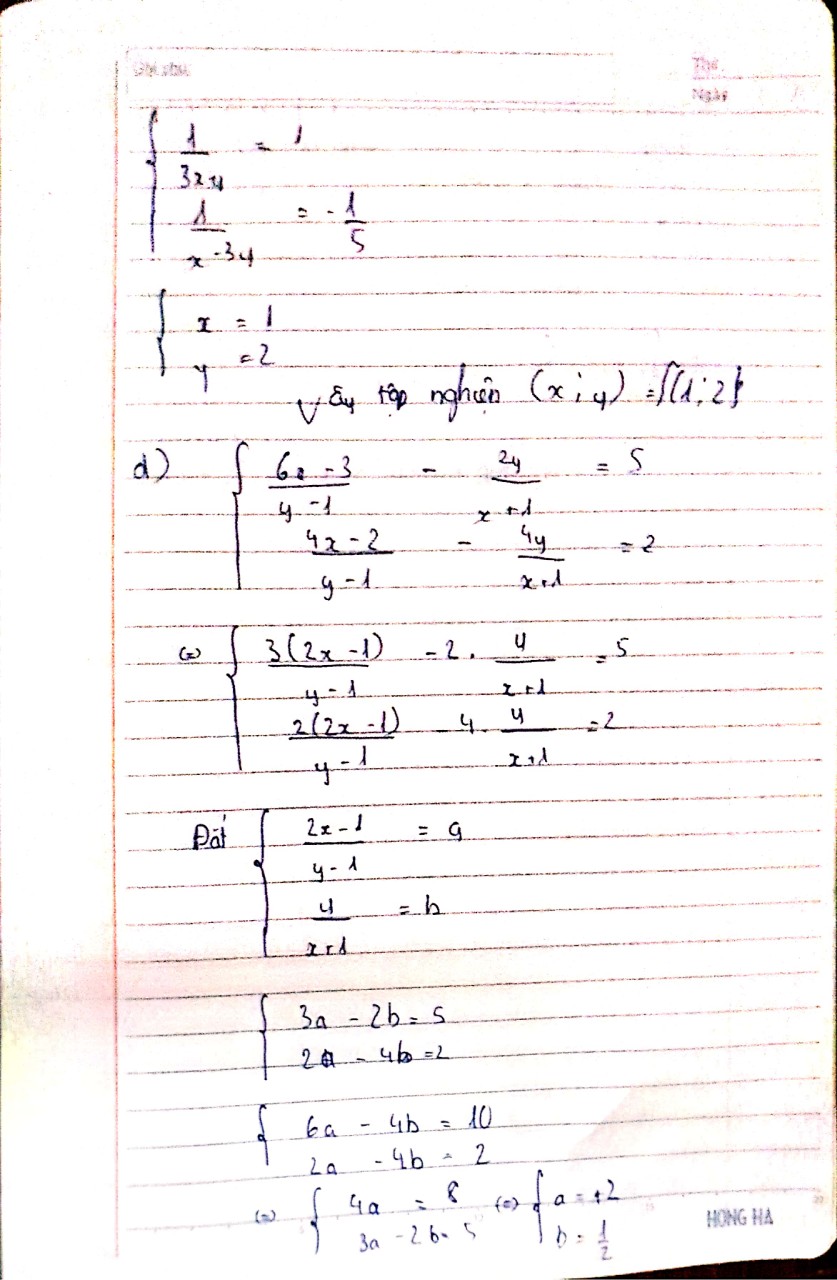 Thứ
Ngày
{ 1/(3x-y) = 1
1/(x-3y) = -1/5
{ x = 1
y = 2
Vậy tập nghiệm (x; y) = {(1; 2)}
d) { (6x - 3)/(y - 1) - 2y/(x + 1) = 5
(4x - 2)/(y - 1) - 4y/(x + 1) = 2
(=) { 3(2x - 1)/(y - 1) - 2. y/(x + 1) = 5
2(2x - 1)/(y - 1) - 4. y/(x + 1) = 2
Đặt { (2x - 1)/(y - 1) = a
y/(x + 1) = b
{ 3a - 2b = 5
2a - 4b = 2
{ 6a - 4b = 10
2a - 4b = 2
(=) { 4a = 8 (=) { a = +2
3a - 2b = 5 b = 1/2
HONG HA